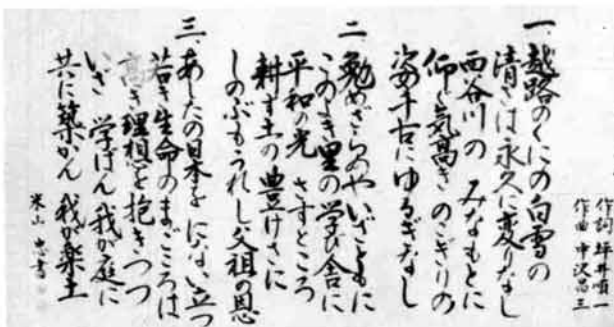 作詞 坪井順一
作曲 中沢高三
一、越路のくにの白雪の
清きは永久に変りなし
西谷川の みなもとに
仰ぐ気高き のこぎりの
姿千古にゆるぎなし
二、勉めざらめや いざともに
このよき里の学び舎に
平和の光 さすところ
耕す土の豊けさに
しのぶもうれし父祖の恩
三、あしたの日本を にない立つ
若き生命のまごころは
高き理想を抱きつつ
いざ 学ばん 我が庭に
共に築かん 我が楽土
米山 忠書